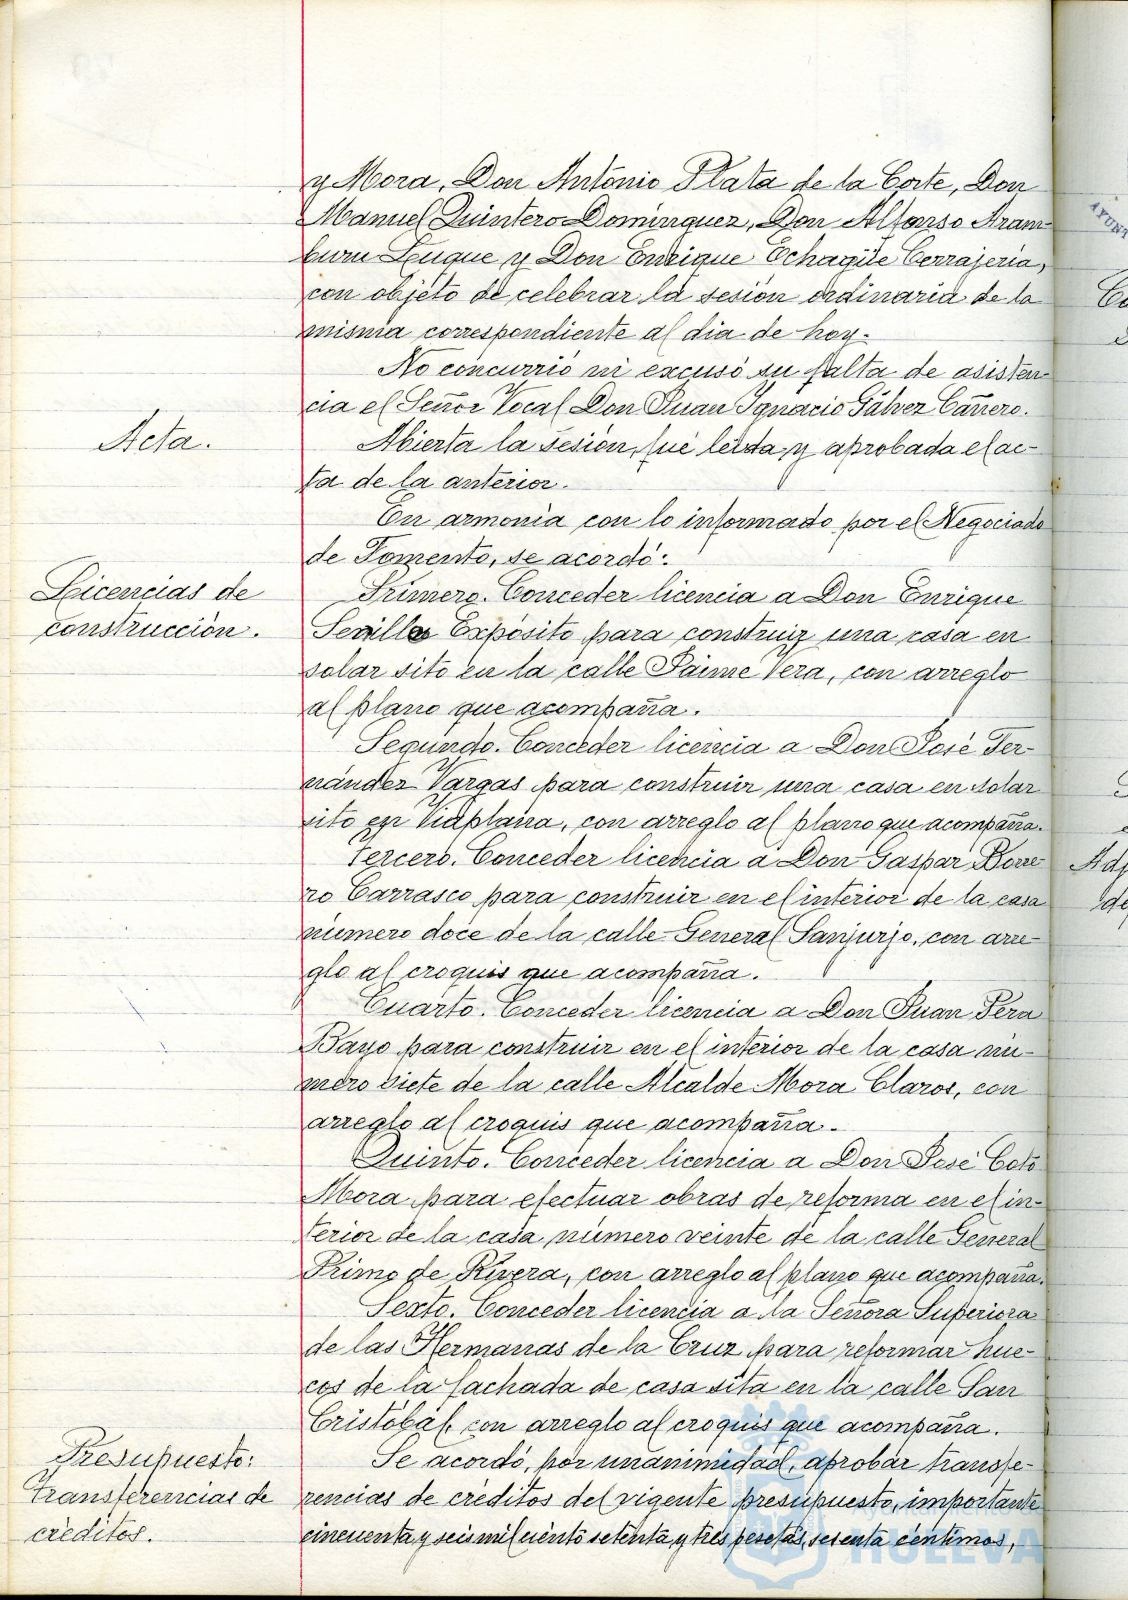 y Mora, Don Antonio Plata de la Corte, Don
Manuel Quintero Dominguez, Don Alfonso Aram-
buru Luque y Don Enrique Echagüe Cerrajeria,
con objeto de celebrar la sesión ordinaria de la
misma correspondiente al dia de hoy.
No concurrió ni excusó su falta de asisten-
cia el Señor Vocal Don Juan Ignacio Gálvez Cañero.
Acta.
Abierta la sesión, fué leida y aprobada el ac-
ta de la anterior.
En armonia con lo informado por el Negociado
de Fomento, se acordó:
Licencias de
construcción.
Primero. Conceder licencia a Don Enrique
Sevilla Expósito para construir una casa en
solar sito en la calle Jaime Vera, con arreglo
al plano que acompaña.
Segundo. Conceder licencia a Don José Fer-
nández Vargas para construir una casa en solar
sito en Viaplana, con arreglo al plano que acompaña.
Tercero. Conceder licencia a Don Gaspar Borre-
ro Carrasco para construir en el interior de la casa
número doce de la calle General Sanjurjo, con arre-
glo al croquis que acompaña.
Cuarto. Conceder licencia a Don Juan Pera
Bayo para construir en el interior de la casa nú-
mero siete de la calle Alcalde Mora Claros, con
arreglo al croquis que acompaña.
Quinto. Conceder licencia a Don José Coto
Mora para efectuar obras de reforma en el in-
terior de la casa número veinte de la calle General
Primo de Rivera, con arreglo al plano que acompaña.
Sexto. Conceder licencia a la Señora Superiora
de las Hermanas de la Cruz para reformar hue-
cos de la fachada de casa sita en la calle San
Cristóbal, con arreglo al croquis que acompaña.
Presupuesto:
Transferencias de
créditos.
Se acordó, por unanimidad, aprobar transfe-
rencias de créditos del vigente presupuesto, importante
cincuenta y seis mil ciento setenta y tres pesetas, sesenta céntimos,
Ayuntamiento de
HUELVA